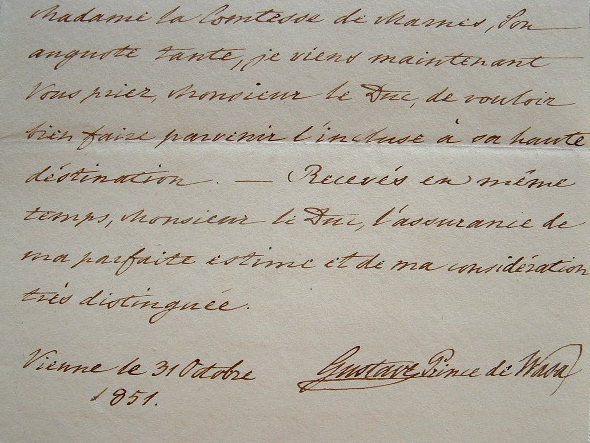 Madame la Comtesse de Marnes, Son
auguste tante, je viens maintenant
Vous prier, Monsieur le Duc, de vouloir
bien faire parvenir l'incluse à sa haute
déstination. — Recevés en même
temps, Monsieur le Duc, l'assurance de
ma parfaite estime et de ma considération
très distinguée.
Vienne le 31 Octobre
1851.
Gustave Prince de Wasa